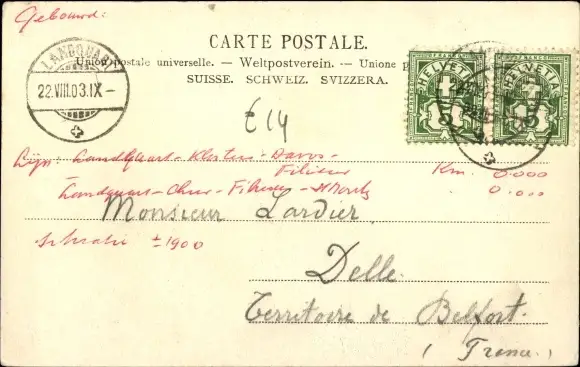 Gebouwd:
CARTE POSTALE.
Union postale universelle. — Weltpostverein. — Unione p
SUISSE. SCHWEIZ. SVIZZERA.
LANDQUART
22.VIII.03.IX–
HELVETIA HELVETIA
E14
Lijn: Landquart - Klosters - Davos -
Filisur Km. 0.000
Landquart - Chur - Filisur - St Moritz 0.000
Monsieur Lardier
± 1900
Delle.
Territoire de Belfort.
(France.)